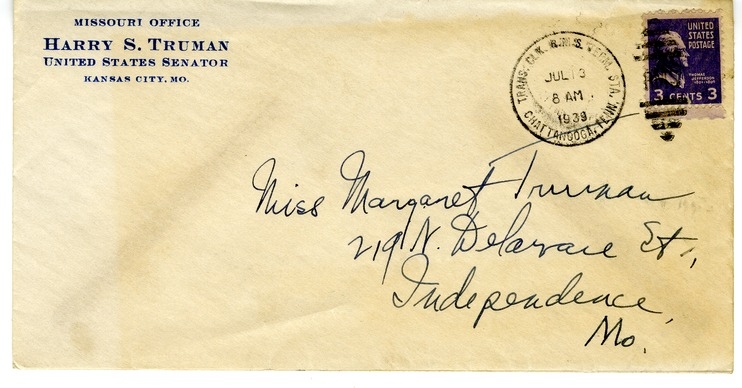 MISSOURI OFFICE
HARRY S. TRUMAN
UNITED STATES SENATOR
KANSAS CITY, MO.
TRANS. CLK. R.M.S. TERM. STA.,
JUL 13
8 AM
1939
CHATTANOOGA, TENN.
UNITED
STATES
POSTAGE
THOMAS
JEFFERSON
3 CENTS 3
Miss Margaret Truman
219 N. Delaware St.,
Independence,
Mo.